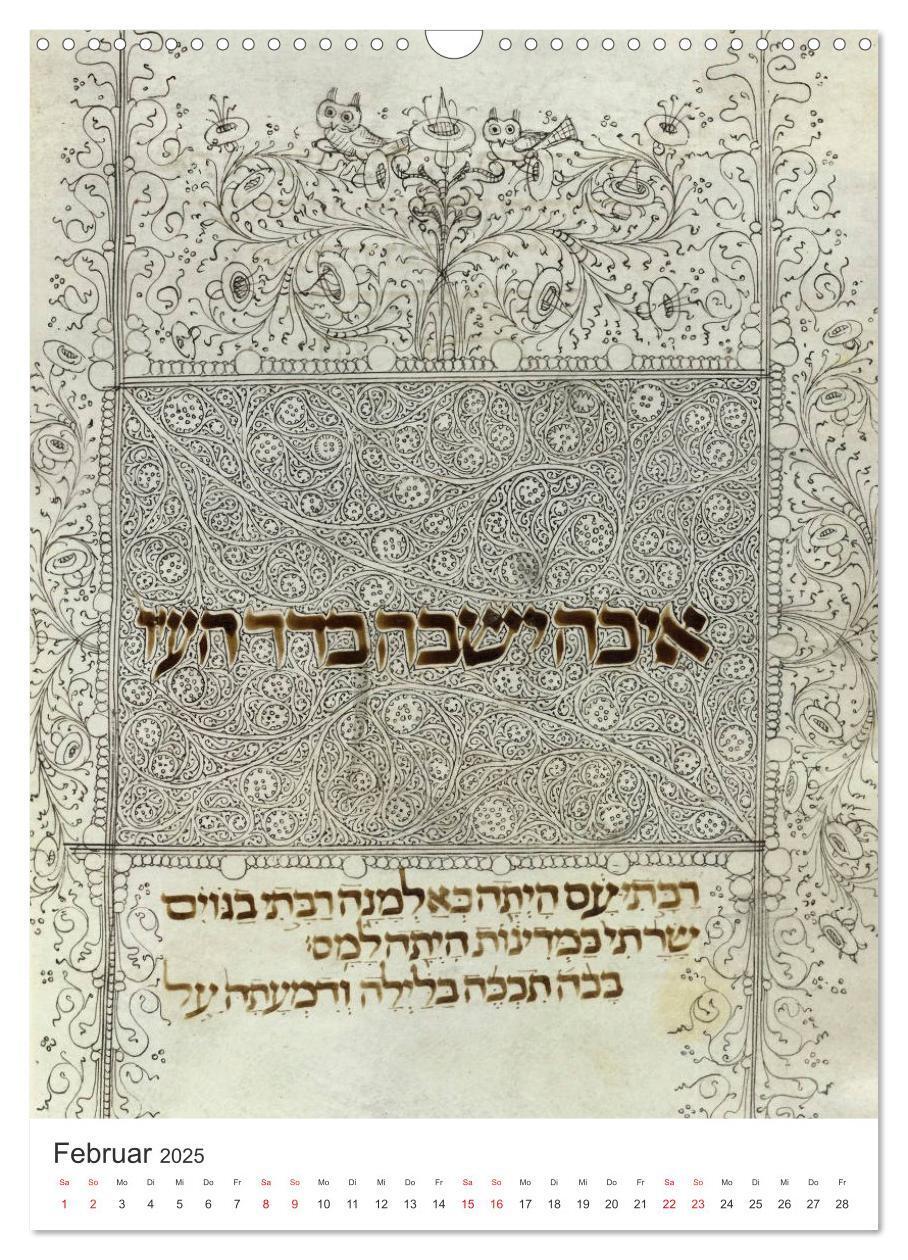 איכה ישבה בדד העי
רבתי עם היתה כאלמנה רבתי בגוים
שרתי במדינות היתה למס׃
בכה תבכה בלילה ודמעתה על
Februar 2025
Sa So Mo Di Mi Do Fr Sa So Mo Di Mi Do Fr Sa So Mo Di Mi Do Fr Sa So Mo Di Mi Do Fr
1 2 3 4 5 6 7 8 9 10 11 12 13 14 15 16 17 18 19 20 21 22 23 24 25 26 27 28